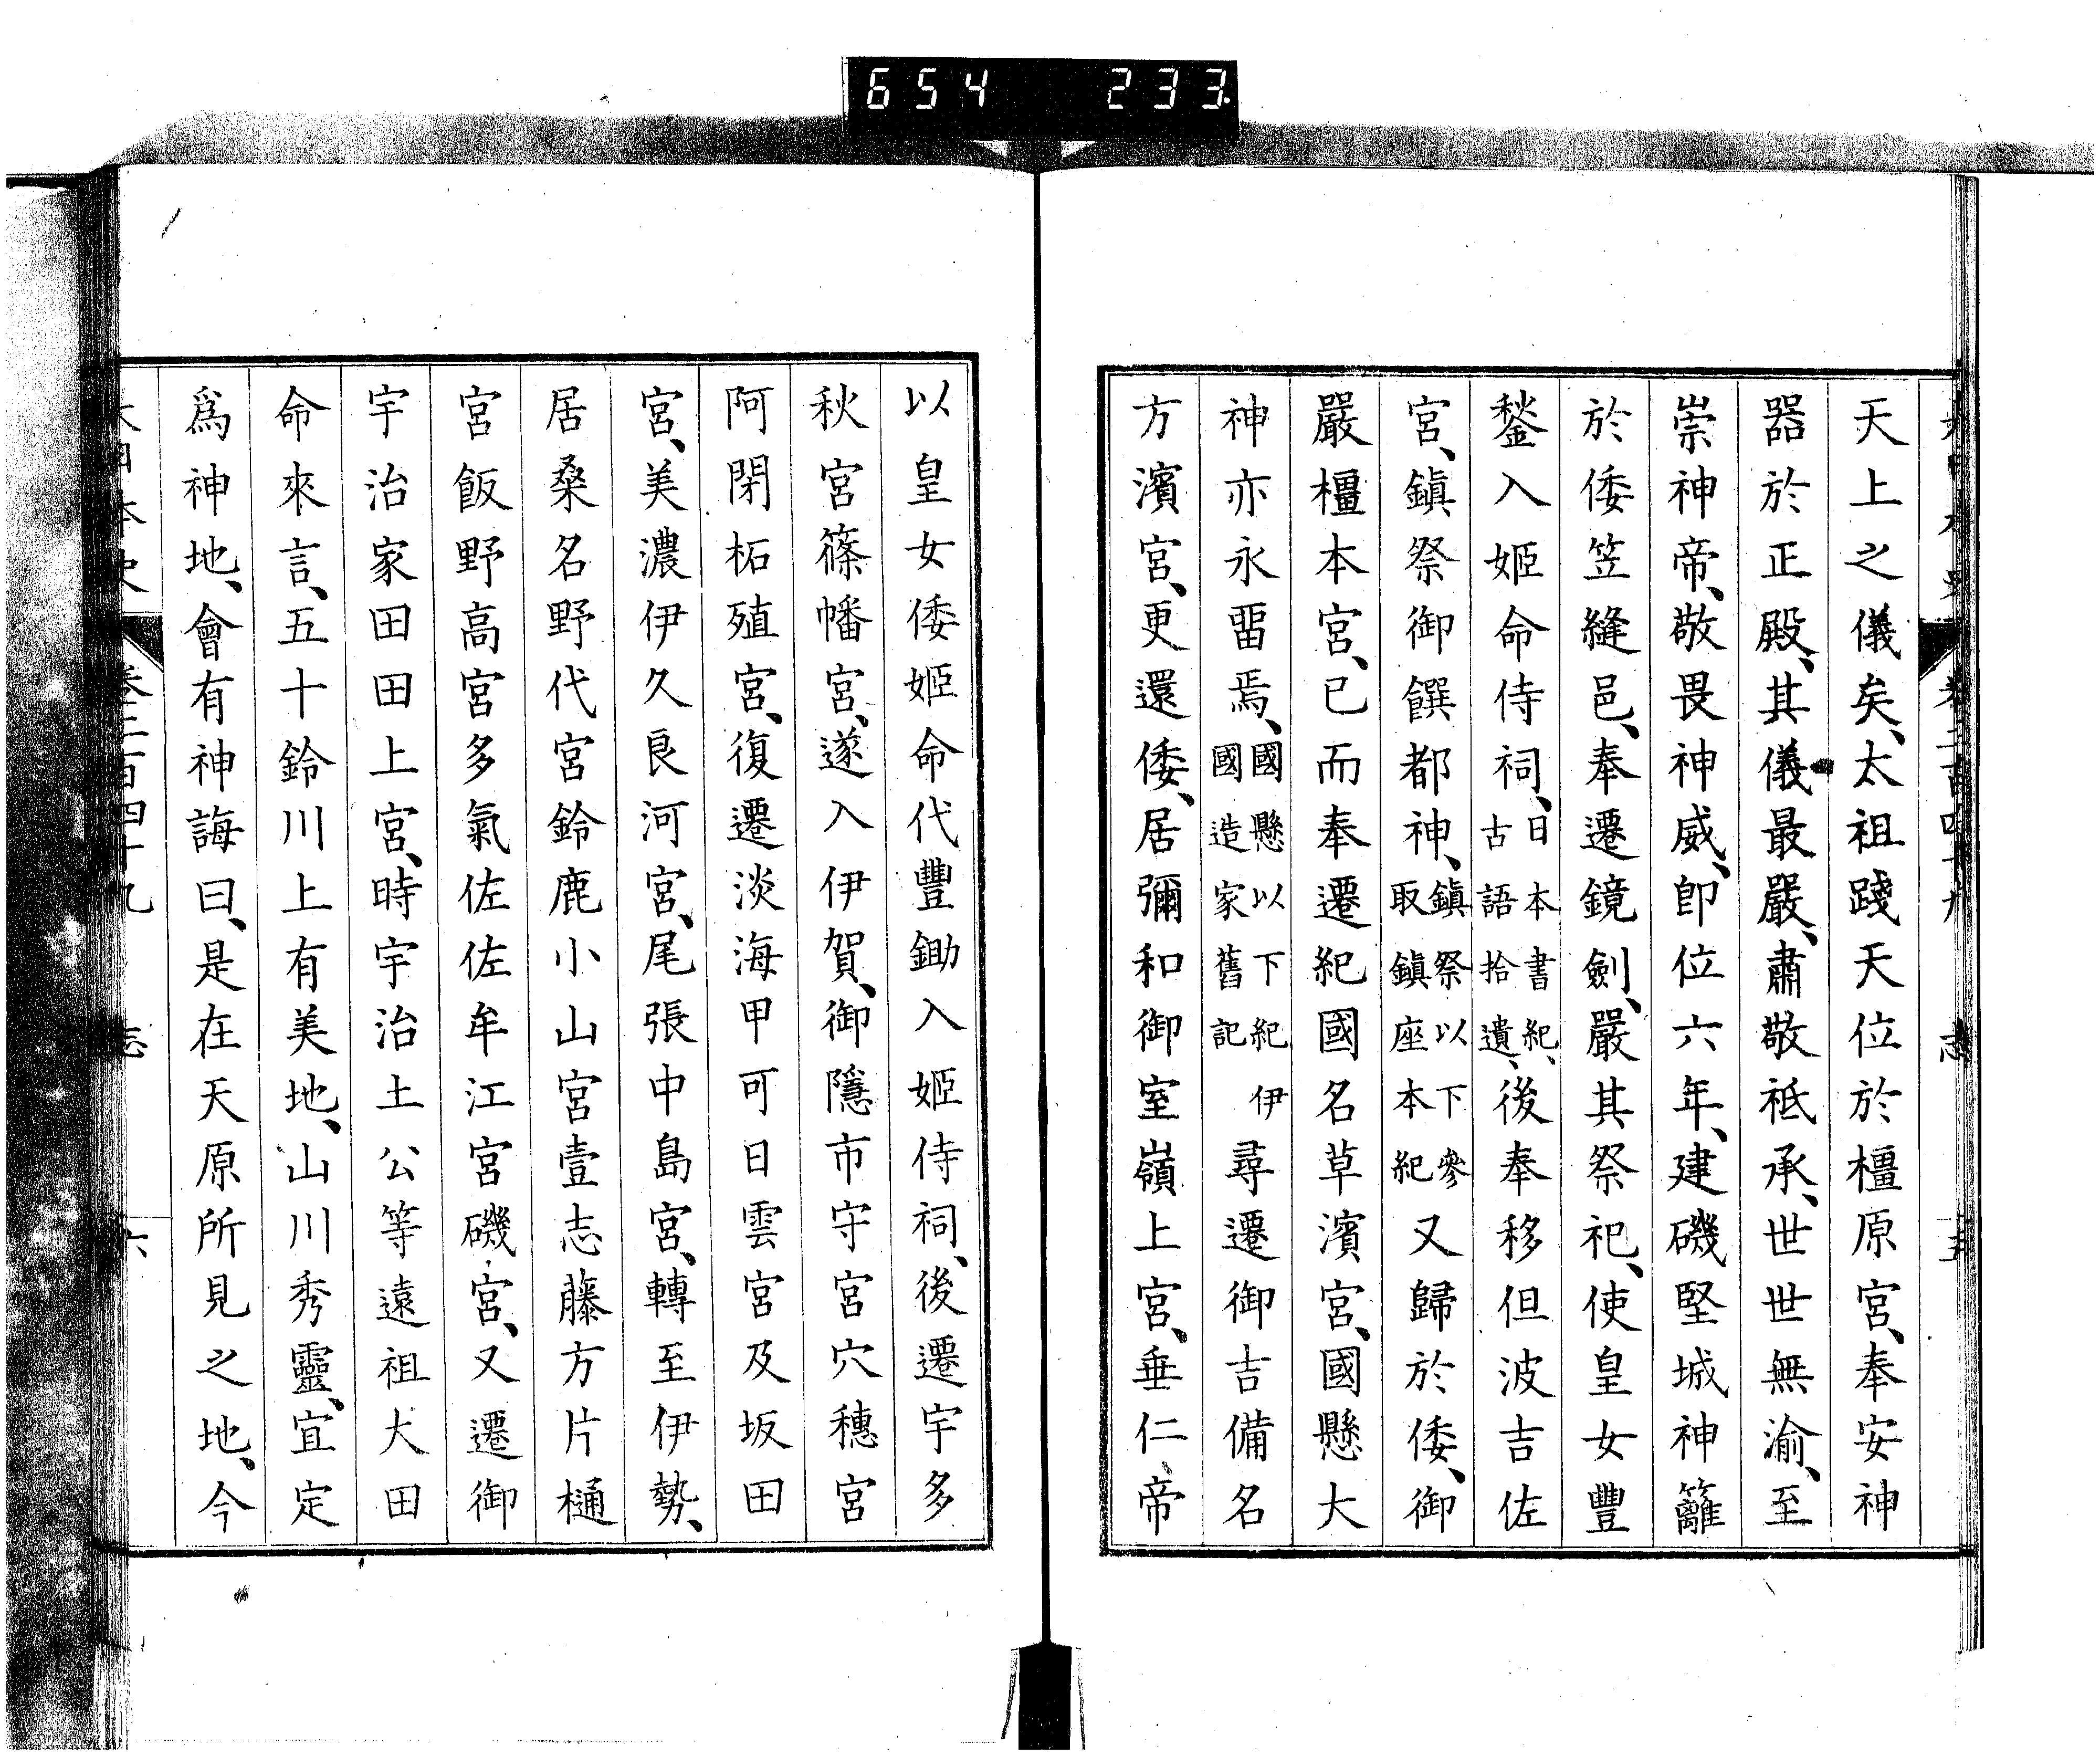 654 233
大日本史 卷二百四十九 志 五
天上之儀矣、太祖踐天位於橿原宮、奉安神
器於正殿、其儀最嚴、肅敬祇承、世世無渝、至
崇神帝、敬畏神威、卽位六年、建磯堅城神籬
於倭笠縫邑、奉遷鏡劍、嚴其祭祀、使皇女豐
鍫入姬命侍祠、日本書紀、古語拾遺、後奉移但波吉佐
宮、鎭祭御饌都神、鎭祭以下參取鎭座本紀又歸於倭、御
嚴橿本宮、已而奉遷紀國名草濱宮、國懸大
神亦永畱焉、國懸以下紀伊國造家舊記尋遷御吉備名
方濱宮、更還倭、居彌和御室嶺上宮、垂仁帝
以皇女倭姬命代豐鋤入姬侍祠、後遷宇多
秋宮篠幡宮、遂入伊賀、御隱市守宮穴穗宮
阿閇柘殖宮、復遷淡海甲可日雲宮及坂田
宮、美濃伊久良河宮、尾張中島宮、轉至伊勢、
居桑名野代宮鈴鹿小山宮壹志藤方片樋
宮飯野高宮多氣佐佐牟江宮磯宮、又遷御
宇治家田田上宮、時宇治土公等遠祖大田
命來言、五十鈴川上有美地、山川秀靈、宜定
爲神地、會有神誨曰、是在天原所見之地、今
大日本史 卷二百四十九 志 六